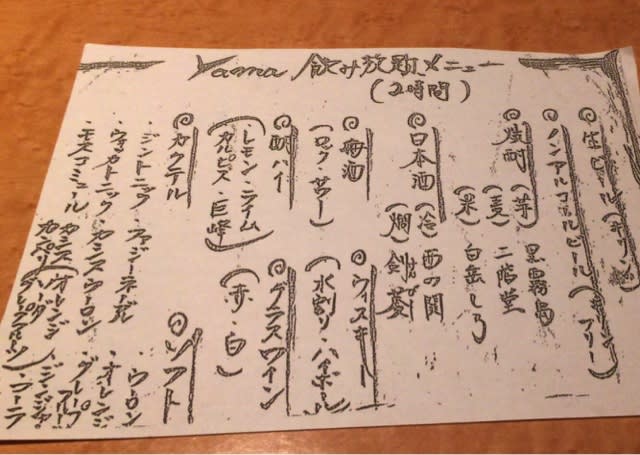 Yama 飲み放題メニュー
(2時間)
◎生ビール(キリン)
◎ノンアルコールビール(キリンフリー)
◎焼酎(芋) 黒霧島
(麦) 二階堂
(米) 白岳しろ
◎日本酒(冷) 西の関
(燗) 剣菱
◎梅酒
(ロック・サワー)
◎酎ハイ
(レモン・ライム
カルピス・巨峰)
◎ウィスキー
(水割り・ハイボール)
◎グラスワイン
(赤・白)
◎カクテル
・ジントニック・ファジーネーブル
・ウォッカトニック・カシスウーロン
・モスコミュール
カシス(オレンジ
◎ソフト
・ウーロン
・オレンジ
・グレープフルーツ
・ジンジャー
・コーラ